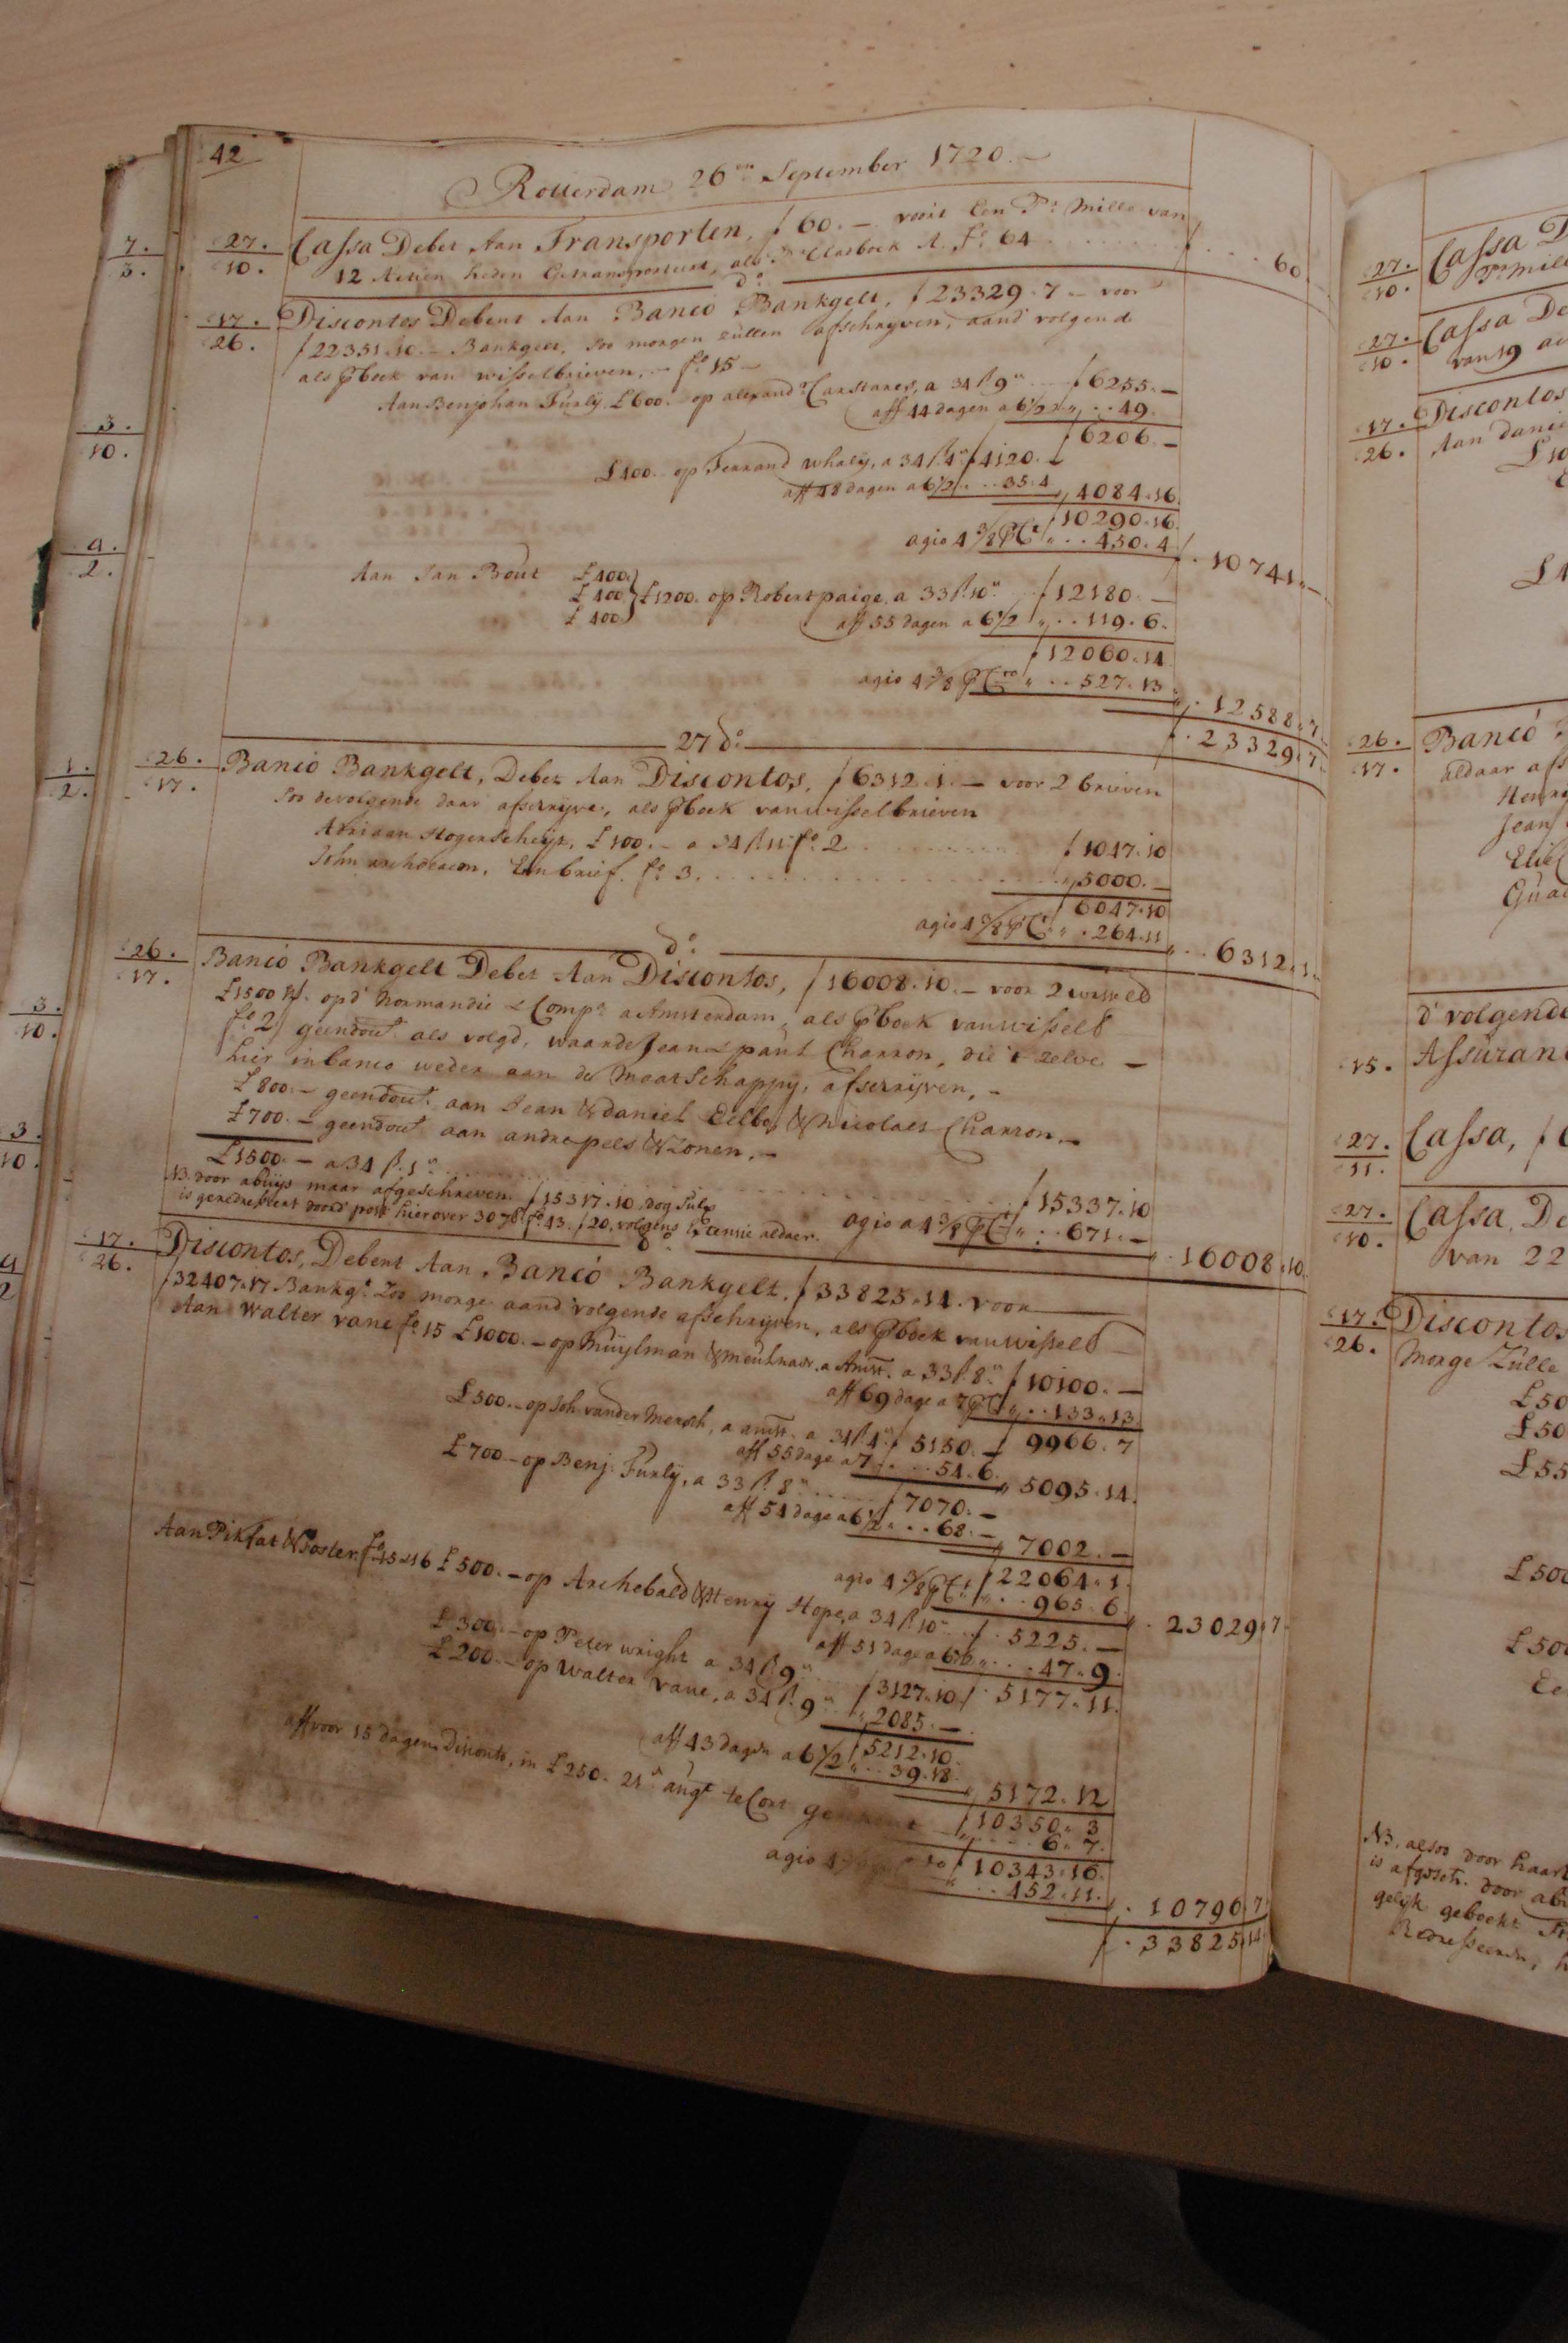 42
Rotterdam 26en September 1720.—
27. / 10. Cassa Debet Aan Transporten, f 60.— voor Een Pr. Mille van
12 Actien heden Getransporteert, als Pr. A. fo. 64 f . . . 60
do.
17. / 26. Discontos Debent Aan Banco Bankgelt, f 23329.7.— voor
f 22351.10.— Bankgelt, soo morgen zullen afschryven, aand volgende
als Pr boek van wisselbrieven.— fo. 15 —
Aan Benjohan Furly, £ 600.— op alexand. Carstares, a 34 ß 9 f 6255.—
aff 44 dagen a 6 1/2 . . 49.
f 6206.—
£ 400.— op Ferrand Whaly, a 34 ß 4 f 4120.—
aff 48 dagen a 6 1/2 . . 35.4 4084.16.
f 10290.16.
agio 4 3/8 PrCt . . 450.4 f . 10741.—
Aan Jan Bout £ 400.
£ 400. } £ 1200. op Robert paige, a 33 ß 10 f 12180.—
£ 400.
aff 55 dagen a 6 1/2 . . 119.6.
f 12060.14
agio 4 3/8 PrCto . . 527.13
. 12588.7.
f . 23329.7.
27 do.
26. / 17. Banco Bankgelt, Debet Aan Discontos, f 6312.1.— voor 2 brieven
soo de volgende daar afschryve, als Pr boek van wisselbrieven
Adriaan Hogerscheyt, £ 100.— a 34 ß 11 fo. 2 f 1047.10
John archdeacon, Een brief. fo. 3. 5000.—
f 6047.10
agio 4 3/8 PrCt . 264.11
. . 6312.1.
do.
26. / 17. Banco Bankgelt Debet Aan Discontos, f 16008.10.— voor 2 wissels
£ 1500 opd' Normandie & Compa. a Amsterdam, als Pr boek van wissels
fo. 2 geendost als volgd, waarde Jean & paul Charron, die 't zelve —
hier in banco weder aan de Maatschappy, afschryven,—
£ 800.— geendost aan Jean & daniel & Nicolaes Charron.—
£ 700.— geendost aan andre pels & Zonen.—
£ 1500.— a 34 ß 1 f 15337.10
NB. door abuys maar afgeschreven f 15317.10 dog sulx
is geredresseert door d' post hier over 30 7b. fo. 43. f 20, volgens extensie aldaer. agio a 4 3/8 PrCt . . 671.—
. 16008.10.
do.
17. / 26. Discontos, Debent Aan Banco Bankgelt, f 33825.14. voor
f 32407.17 Bankgt. Zoo morge aand volgende afschryven, als Pr boek van wissels
Aan Walter vane fo. 15 £ 1000.— op Muylman & Meulnaer, a Amst. a 33 ß 8 f 10100.—
aff 69 dage a 7 PrCt . . 133.13.
9966.7
£ 500.— op Joh. vander Mersch, a amst. a 34 ß 4 f 5150.—
aff 55 dage a 7 . . 54.6. 5095.14.
£ 700.— op Benj. Furly, a 33 ß 8 f 7070.—
aff 54 dage a 6 1/2 . . 68.— 7002.—
f 22064.1.
agio 4 3/8 PrCt . . 965.6. . 23029.7.
Aan Pikfat & Foster fo. 15 & 16 £ 500.— op Archebald & Henry Hope, a 34 ß 10 f . 5225.—
aff 51 dage a 6 1/2 . . 47.9.
f . 5177.11.
£ 300.— op Peter wright a 34 ß 9 f 3127.10
£ 200.— op Walter vane, a 34 ß 9 2085.—
f 5212.10.
aff 43 dagen a 6 1/2 . . 39.18.
5172.12
f 10350.3
aff voor 15 dagen Disconto, in £ 250. 21 augt te Cort . . 6.7.
f 10343.16.
agio 4 . . 452.11.
. 10796.7
f . 33825.14.
7. / 3.
3. / 10.
4. / 2.
1. / 2.
3. / 10.
3. / 10.
4 / 2
27. / 10. Cassa D
Pr mill
27. / 10. Cassa De
van 19 ac
17. / 26. Discontos
Aan danie
£ 10
£ 4
26. / 17. Banco
aldaar afs
Henry
Jean
Elie
Gua
d' volgende
15. Assuran
27. / 11. Cassa, f 6
27. / 10. Cassa, De
van 22
17. / 26. Discontos
Morge Zulle
£ 50
£ 50
£ 55
£ 500
£ 500
Ee
NB. alsoo door haar
is afgesch. door abu
gelyk geboekt
Redresseeren, h